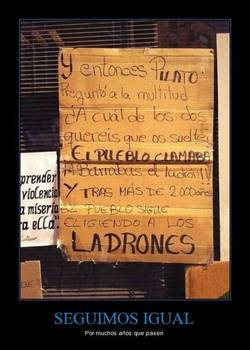 Y entonces PILATO
Preguntó a la multitud
¿A cuál de los dos
quereis que os suelte?
EL PUEBLO CLAMABA
¡¡A Barrabas el ladrón!!
Y TRAS MÁS DE 2.000 años
EL PUEBLO SIGUE
ELIGIENDO A LOS
LADRONES
prender
violencia
a miseria
ella"
SEGUIMOS IGUAL
Por muchos años que pasen